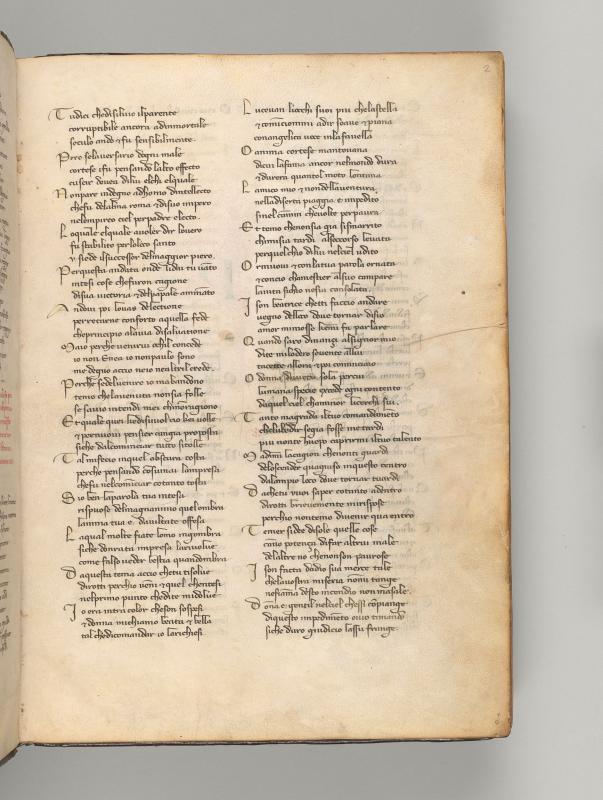 2
Tu dici che di siluio il parente
corruptibile ancora ad inmortale
secolo ando & fu sensibilmente.
Pero se laduersario dogni male
cortese i fu pensando lalto effecto
cuscir douea di lui el chi el quale
Non pare indegno ad homo dintellecto
che fu de lalma roma & di suo impero
nel empireo ciel per padre electo.
La quale el quale a uoler dir lo uero
fu stabilito per lo loco santo
u siede il successor del maggior piero.
Per questa andata onde li dai tu uanto
intese cose che furon cagione
di sua uictoria & del papale ammanto
Andoui poi lo uas delectione
per recarne conforto a quella fede
che principio a la uia di saluatione
Ma io perche uenirui o chil concede
io non Enea io non paulo sono
me degno a cio ne io ne altri l crede.
Perche se del uenire io mabandono
temo che la uenuta non sia folle
se sauio intendi mei chi non ragiono
Et quale quei che disuuol cio che uolle
& per nuoui pensier cangia proposta
si che dal cominciar tutto si tolle
Tal mi fec io in quella obscura costa
perche pensando consumai la impresa
che fu nel cominciar cotanto tosta
Si o ben la parola tua intesa
rispuose del magnanimo quel ombra
lanima tua e da uiltate offesa
La qual molte fiate lomo ingombra
si che donrata impresa lo riuolue
come falso ueder bestia quandombra
Da questa tema accio che tu ti solue
dirotti perchio uenni & quel chentesi
nel primo punto che di te mi dolue
Io era intra color che son sospesi
& donna mi chiamo beata & bella
tal che di comandar io la richiesi
Luceuan li occhi suoi piu che la stella
& cominciommi a dir soaue & piana
con angelica uoce in sua fauella
O anima cortese mantouana
di cui la fama ancor nel mondo dura
& durera quantol moto lontana
Lamico mio & non de la uentura
nella diserta piaggia e impedito
si nel camin che uolto e per paura
Et temo che non sia gia si smarrito
chi mi sia tardi al soccorso leuata
per quel chio di lui nel ciel udito
Or muoui & con la tua parola ornata
& con cio cha mestier al suo campare
laiuta si chio ne sia consolata.
I son beatrice che ti faccio andare
uegno del loco oue tornar disio
amor mi mosse che mi fa parlare
Quando saro dinanzi al signor mio
di te mi lodero souente a llui
tacette allora & poi comincia io
O donna di uertu sola per cui
lumana specie excede ogni contento
da quel ciel cha minor li cerchi sui.
Tanto magrada il tuo comandamento
che lubidir se gia fosse me tardi
piu non te huop caprirmi il tuo talento
Ma dimmi la cagion che non ti guardi
de lo scender qua giuso in questo centro
da lampio loco oue tornar tu ardi
Da che tu uuoi saper cotanto a dentro
dirotti brieuemente mi rispose
perchio non temo di uenir qua entro
Temer si de di sole quelle cose
canno potenza di fare altrui male
de laltre no che non son paurose
I son facta da dio sua merce tale
che la uostra miseria non mi tange
ne fiama desto incendio non massale.
Dona e gentil nel ciel che si compiange
di questo impedimento ouio ti mando
si che duro giudicio la ssu frange